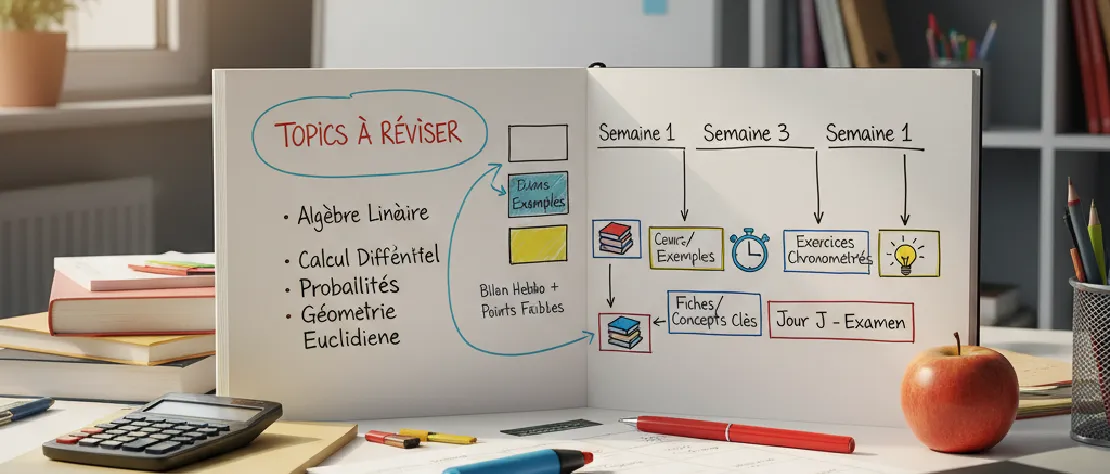 TOPICS À RÉVISER
· Algèbre Linèaire
· Calcul
· Probailités
· Géometrie
Euclidiene
Exsmples
Bilen Hebbo +
Points Faibles
Semaine 1
Semaine 3
Semaine 1
Exemples
Exercices
Chronometrés
Fiches/
Concepts Clès
Jour J - Examen